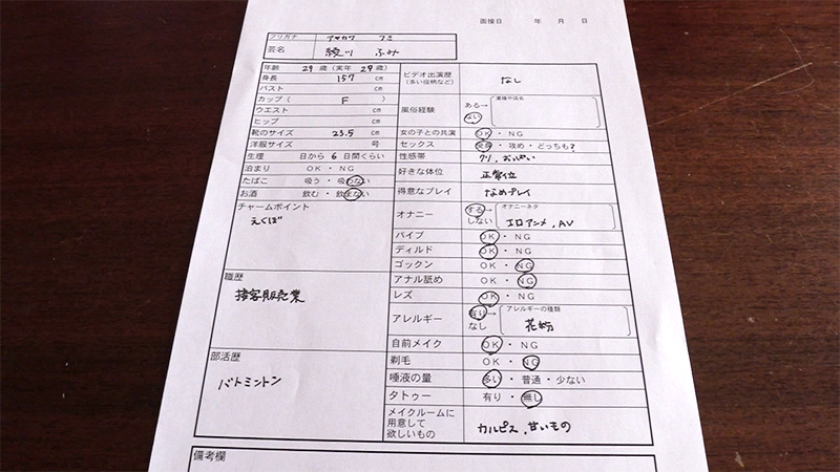 面接日 年 月 日
フリガナ アヤカワ フミ
芸名 綾川 ふみ
年齢 29 歳 (実年 29 歳)
身長 157 cm
バスト cm
カップ ( F )
ウエスト cm
ヒップ cm
靴のサイズ 23.5 cm
洋服サイズ 号
生理 日から 6 日間くらい
泊まり OK ・ NG
たばこ 吸う ・ 吸わない
お酒 飲む ・ 飲まない
チャームポイント
えくぼ
職歴
接客販売業
部活歴
バトミントン
ビデオ出演歴 なし
(多い役柄など)
風俗経験 ある→
ない
女の子との共演 OK ・ NG
セックス 受身 ・ 攻め ・ どっちも?
性感帯 クリ、おっぱい
好きな体位 正常位
得意なプレイ なめプレイ
オナニー する→ オナニーネタ
しない エロアニメ、AV
バイブ OK ・ NG
ディルド OK ・ NG
ゴックン OK ・ NG
アナル舐め OK ・ NG
レズ OK ・ NG
アレルギー 有り→ アレルギーの種類
なし 花粉
自前メイク OK ・ NG
剃毛 OK ・ NG
唾液の量 多い ・ 普通 ・ 少ない
タトゥー 有り ・ 無し
メイクルームに
用意して
欲しいもの カルピス、甘いもの
備考欄